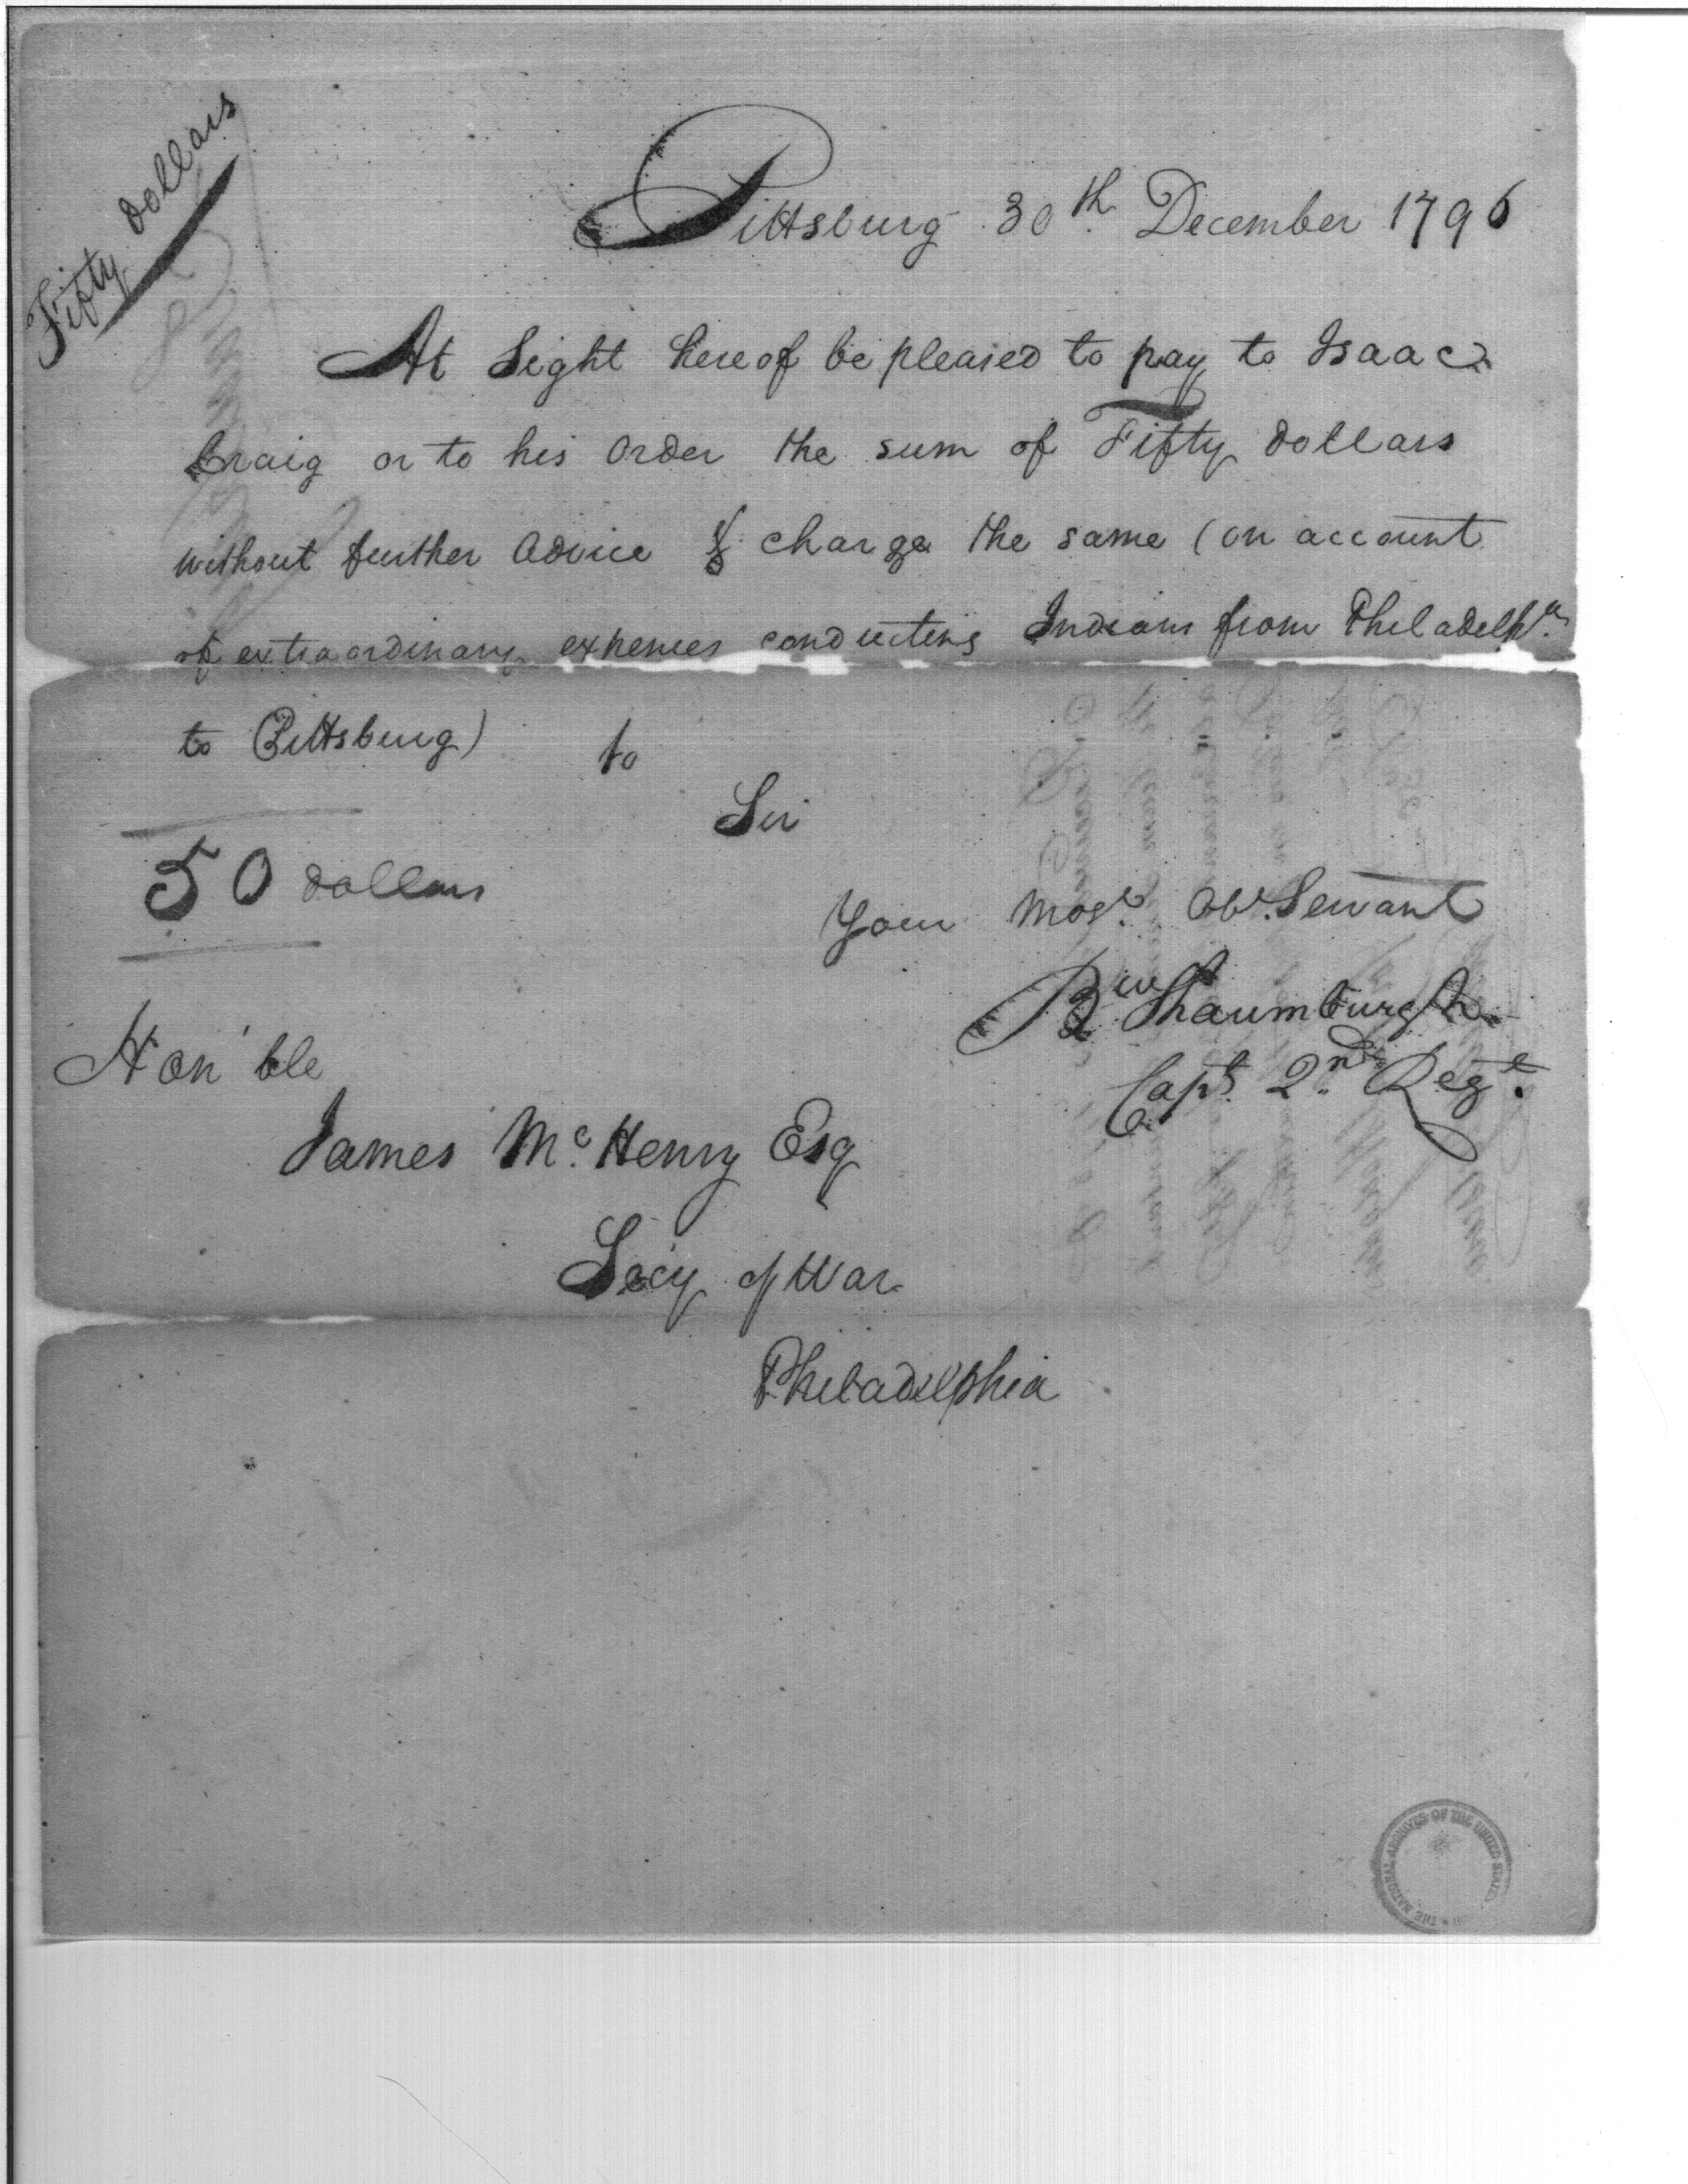 Fifty dollars
Pittsburg 30th December 1796
At Sight hereof be pleased to pay to Isaac
Craig or to his order the sum of Fifty dollars
without further advice & charge the same (on account
of extraordinary expenses conducting Indians from Philadelpa.
to Pittsburg) to
Sir
50 dollars
Your most. Obt. Servant
Bw Shaumburgh
Capt. 2nd Regt.
Hon'ble
James Mc. Henry Esq
Secy of War
Philadelphia
THE NATIONAL ARCHIVES OF THE UNITED STATES